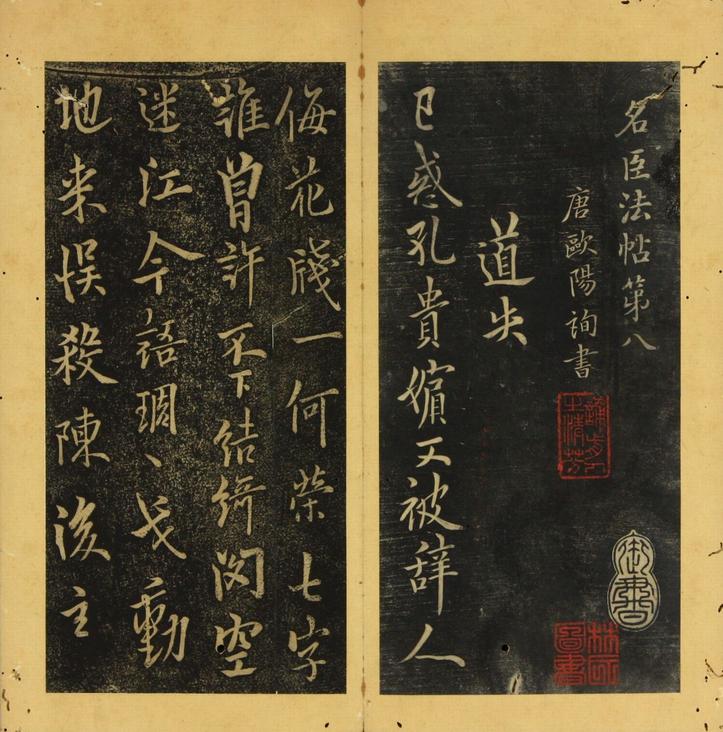 名臣法帖第八
御書
唐歐陽詢書
誦先人之清芬
道失
已惑孔貴嬪又被辞人
侮花牋一何榮七字
誰曽許不下結綺閣空
迷江令語琱戈動
地来悮殺陳後主